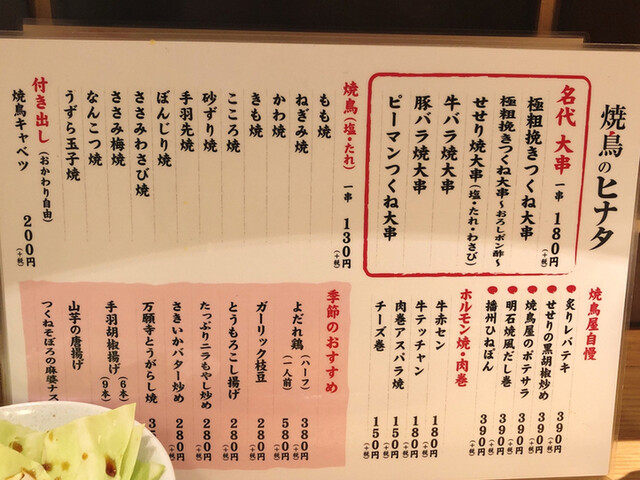 焼鳥のヒナタ
名代 大串 一串 180円(+税)
極粗挽きつくね大串
極粗挽きつくね大串〜おろしポン酢〜
せせり焼大串(塩・たれ・わさび)
牛バラ焼大串
豚バラ焼大串
ピーマンつくね大串
焼鳥(塩・たれ) 一串 130円(+税)
もも焼
ねぎみ焼
かわ焼
きも焼
こころ焼
砂ずり焼
手羽先焼
ぼんじり焼
ささみわさび焼
ささみ梅焼
なんこつ焼
うずら玉子焼
付き出し(おかわり自由)
焼鳥キャベツ 200円(+税)
焼鳥屋自慢
炙りレバテキ 390円(+税)
せせりの黒胡椒炒め 390円(+税)
焼鳥屋のポテサラ 390円(+税)
明石焼風だし巻 390円(+税)
播州ひねぽん 390円(+税)
ホルモン焼・肉巻
牛赤セン 180円(+税)
牛テッチャン 180円(+税)
肉巻アスパラ焼 150円(+税)
チーズ巻 150円(+税)
季節のおすすめ
よだれ鶏(ハーフ) 380円(+税)
(一人前) 580円(+税)
ガーリック枝豆 280円(+税)
とうもろこし揚げ 280円(+税)
たっぷりニラもやし炒め 280円(+税)
さきいかバター炒め 280円(+税)
万願寺とうがらし焼 3
手羽胡椒揚げ(6本)
(9本)
山芋の唐揚げ
つくねそぼろの麻婆ナス